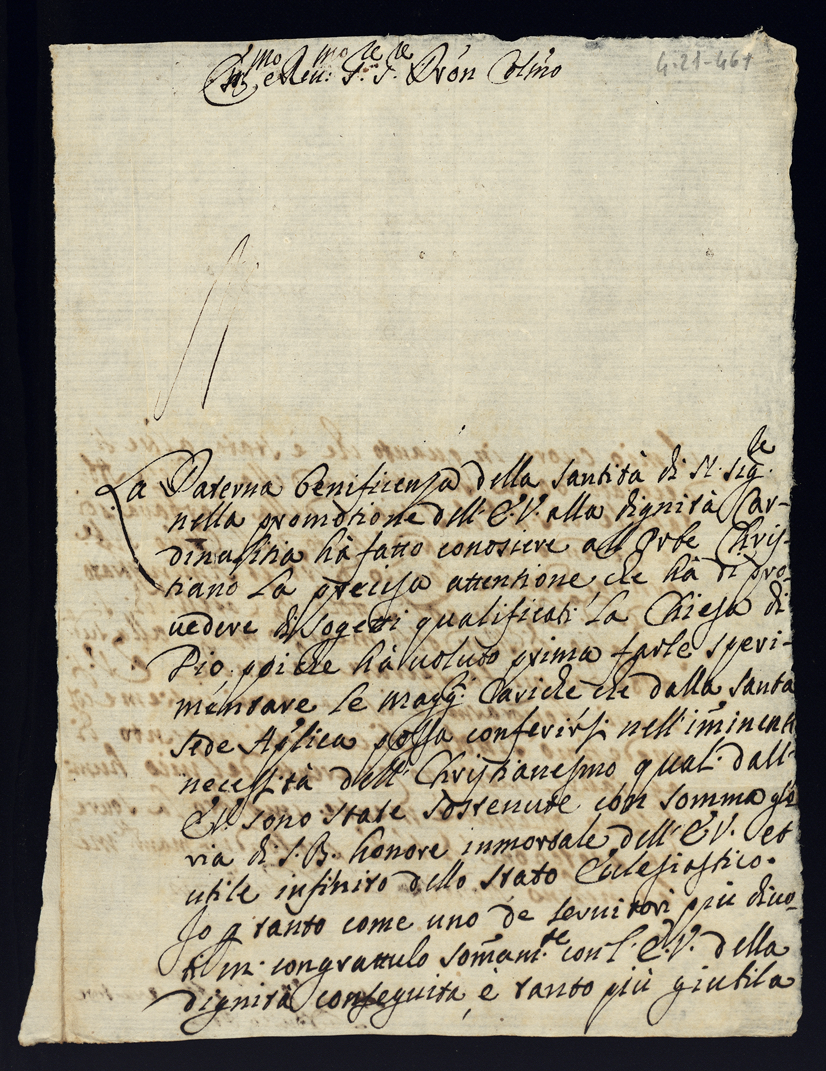 Em̃mo e Reu:mo S.re S.re Prõn Colmo
4.21-461
La Paterna benificenza della santità di N. Sig.re
nella promotione dell'E.V. alla dignità Car-
dinalitia hà fatto conoscere all'Orbe Chris-
tiano La precisa attentione, che hà di pro-
uedere di sogetti qualificati La Chiesa di
Dio, poiche hà uoluto prima farle speri-
mentare le magg.ri Cariche che dalla Santa
Sede Ap̃lica possa conferirsi nell'im̃inenti
necessità dell'Christianesmo quali dall'
E.V. sono state sostenute con somma glo
ria di S.B. honore inmortale dell'E.V. et
utile infinito dello stato Eclesiastico.
Io p̱ tanto come uno de seruitori più diuo-
ti m. congrattulo som̃am.te con l'E.V. della
dignità conseguita, e tanto più giubila